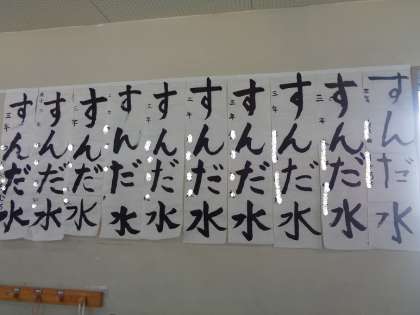 すんだ水
すんだ水
三年
すんだ水
三年
すんだ水
三年
すんだ水
三年
すんだ水
三年
すんだ水
すんだ水
三年
すんだ水
すんだ水
三年
すんだ水
三年